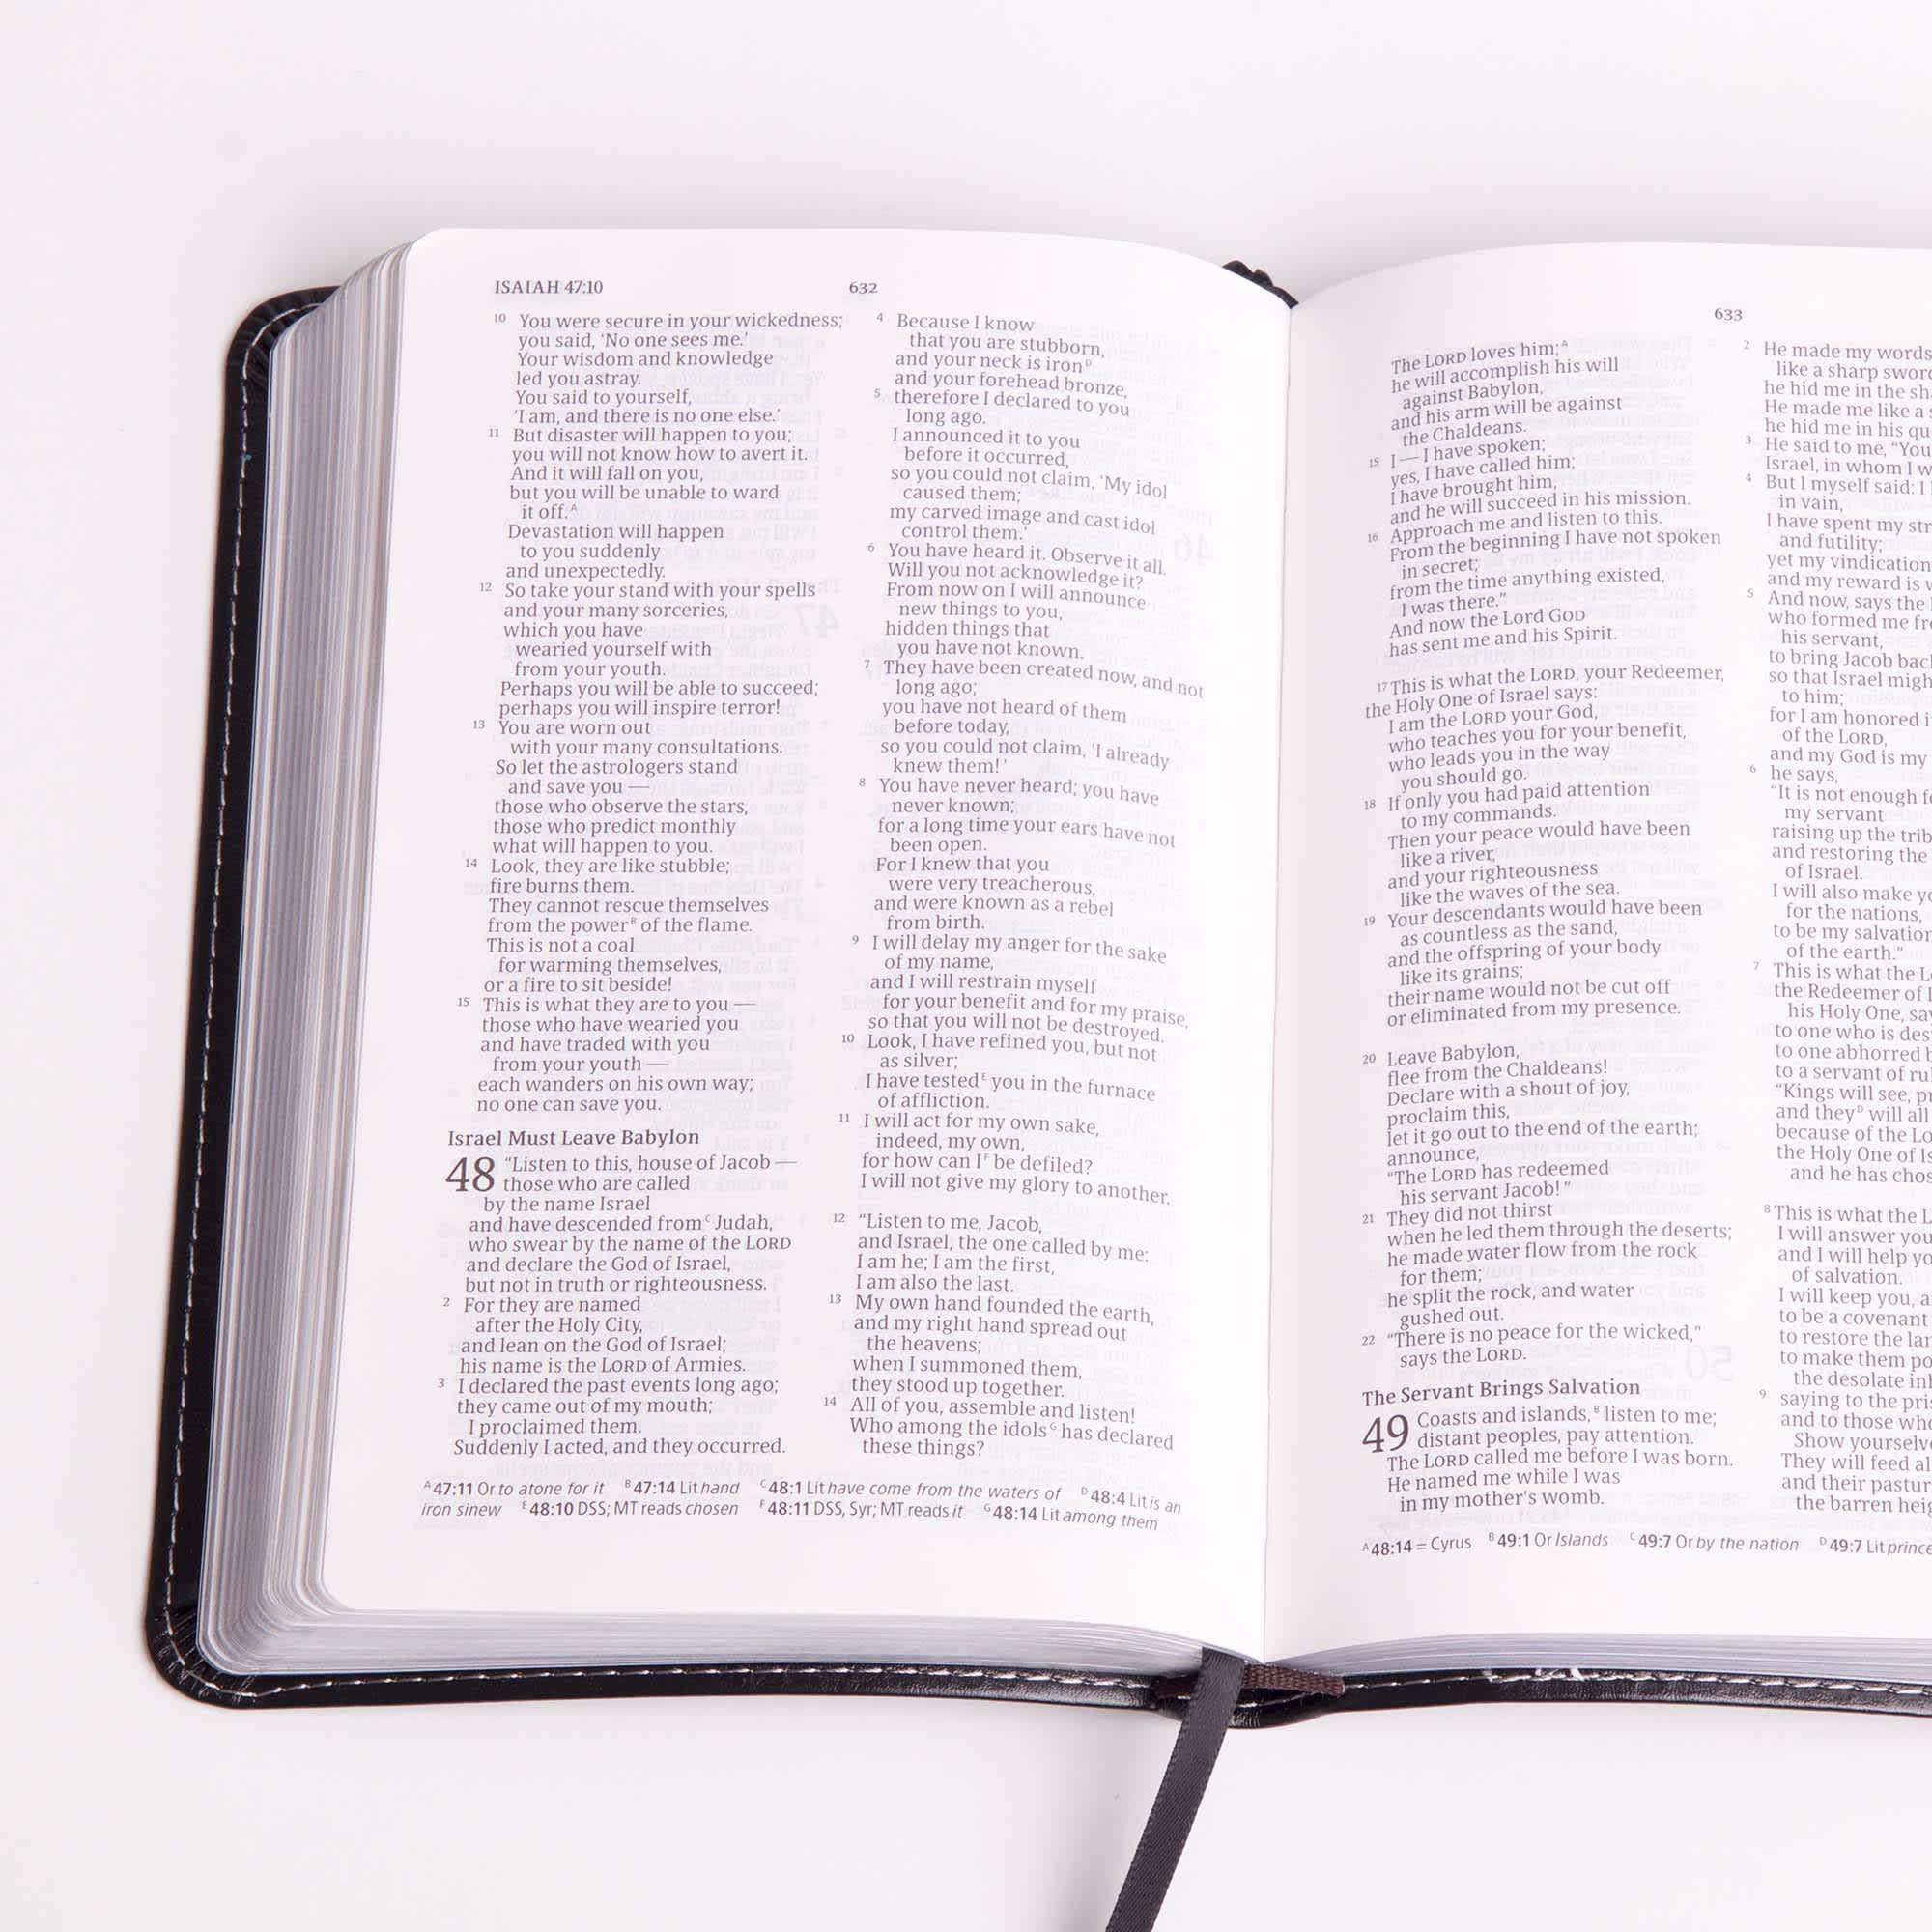 ISAIAH 47:10
632
10 You were secure in your wickedness;
you said, ‘No one sees me.’
Your wisdom and knowledge
led you astray.
You said to yourself,
‘I am, and there is no one else.’
11 But disaster will happen to you;
you will not know how to avert it.
And it will fall on you,
but you will be unable to ward
it off.A
Devastation will happen
to you suddenly
and unexpectedly.
12 So take your stand with your spells
and your many sorceries,
which you have
wearied yourself with
from your youth.
Perhaps you will be able to succeed;
perhaps you will inspire terror!
13 You are worn out
with your many consultations.
So let the astrologers stand
and save you —
those who observe the stars,
those who predict monthly
what will happen to you.
14 Look, they are like stubble;
fire burns them.
They cannot rescue themselves
from the powerB of the flame.
This is not a coal
for warming themselves,
or a fire to sit beside!
15 This is what they are to you —
those who have wearied you
and have traded with you
from your youth —
each wanders on his own way;
no one can save you.
Israel Must Leave Babylon
48 “Listen to this, house of Jacob —
those who are called
by the name Israel
and have descended fromC Judah,
who swear by the name of the LORD
and declare the God of Israel,
but not in truth or righteousness.
2 For they are named
after the Holy City,
and lean on the God of Israel;
his name is the LORD of Armies.
3 I declared the past events long ago;
they came out of my mouth;
I proclaimed them.
Suddenly I acted, and they occurred.
4 Because I know
that you are stubborn,
and your neck is ironD
and your forehead bronze,
5 therefore I declared to you
long ago.
I announced it to you
before it occurred,
so you could not claim, ‘My idol
caused them;
my carved image and cast idol
control them.’
6 You have heard it. Observe it all.
Will you not acknowledge it?
From now on I will announce
new things to you,
hidden things that
you have not known.
7 They have been created now, and not
long ago;
you have not heard of them
before today,
so you could not claim, ‘I already
knew them!’
8 You have never heard; you have
never known;
for a long time your ears have not
been open.
For I knew that you
were very treacherous,
and were known as a rebel
from birth.
9 I will delay my anger for the sake
of my name,
and I will restrain myself
for your benefit and for my praise,
so that you will not be destroyed.
10 Look, I have refined you, but not
as silver;
I have testedE you in the furnace
of affliction.
11 I will act for my own sake,
indeed, my own,
for how can IF be defiled?
I will not give my glory to another.
12 “Listen to me, Jacob,
and Israel, the one called by me:
I am he; I am the first,
I am also the last.
13 My own hand founded the earth,
and my right hand spread out
the heavens;
when I summoned them,
they stood up together.
14 All of you, assemble and listen!
Who among the idolsG has declared
these things?
A 47:11 Or to atone for it B 47:14 Lit hand C 48:1 Lit have come from the waters of D 48:4 Lit is an
iron sinew E 48:10 DSS; MT reads chosen F 48:11 DSS, Syr; MT reads it G 48:14 Lit among them
633
The LORD loves him;A
he will accomplish his will
against Babylon,
and his arm will be against
the Chaldeans.
15 I — I have spoken;
yes, I have called him;
I have brought him,
and he will succeed in his mission.
16 Approach me and listen to this.
From the beginning I have not spoken
in secret;
from the time anything existed,
I was there.”
And now the Lord GOD
has sent me and his Spirit.
17 This is what the LORD, your Redeemer,
the Holy One of Israel says:
I am the LORD your God,
who teaches you for your benefit,
who leads you in the way
you should go.
18 If only you had paid attention
to my commands.
Then your peace would have been
like a river,
and your righteousness
like the waves of the sea.
19 Your descendants would have been
as countless as the sand,
and the offspring of your body
like its grains;
their name would not be cut off
or eliminated from my presence.
20 Leave Babylon,
flee from the Chaldeans!
Declare with a shout of joy,
proclaim this,
let it go out to the end of the earth;
announce,
“The LORD has redeemed
his servant Jacob!”
21 They did not thirst
when he led them through the deserts;
he made water flow from the rock
for them;
he split the rock, and water
gushed out.
22 “There is no peace for the wicked,”
says the LORD.
The Servant Brings Salvation
49 Coasts and islands,B listen to me;
distant peoples, pay attention.
The LORD called me before I was born.
He named me while I was
in my mother’s womb.
2 He made my words
like a sharp sword
he hid me in the
He made me like a
he hid me in his
3 He said to me, “You
Israel, in whom I
4 But I myself said: I
in vain,
I have spent my
and futility;
yet my vindication
and my reward is
5 And now, says the
who formed me
his servant,
to bring Jacob
so that Israel
to him;
for I am honored
of the LORD,
and my God is my
6 he says,
“It is not enough
my servant
raising up the
and restoring the
of Israel.
I will also make
for the nations,
to be my salvation
of the earth.”
7 This is what the
the Redeemer of
his Holy One,
to one who is
to one abhorred
to a servant of
“Kings will see,
and theyD will all
because of the
the Holy One of
and he has
8 This is what the
I will answer you
and I will help
of salvation.
I will keep you,
to be a covenant
to restore the
to make them
the desolate
9 saying to the
and to those who
Show
They will feed
and their
the barren
A 48:14 = Cyrus B 49:1 Or Islands C 49:7 Or by the nation D 49:7 Lit